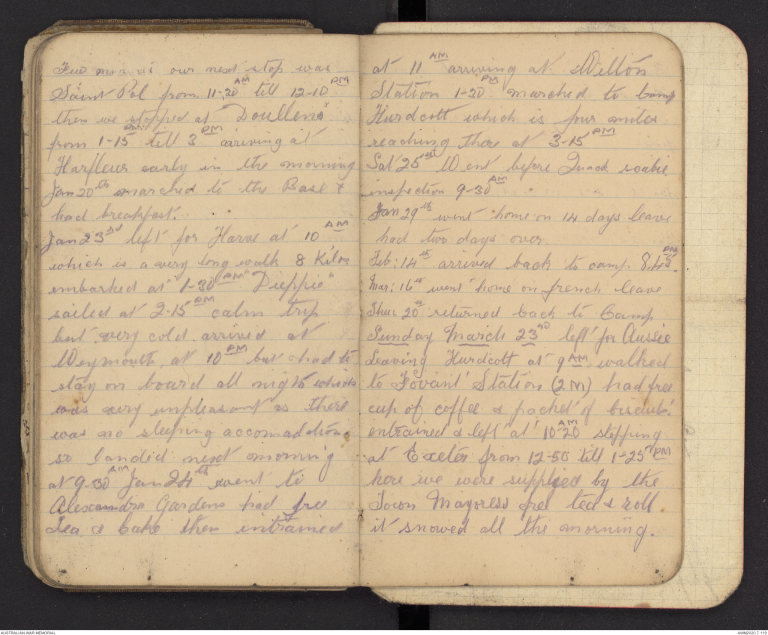 our next stop was
Saint Pol from 11-20 AM till 12-10 PM
then we stopped at Doullens
from 1-15 PM till 3 PM arriving at
Harfleur early in the morning
Jan 20th marched to the Base &
had breakfast.
Jan 23rd left for Havre at 10 AM
which is a very long walk 8 Kilos
embarked at "1-30 PM" Dieppie"
sailed at 2-15 PM calm trip
but very cold arrived at
Weymouth at 10 PM but had to
stay on board all night which
was very unpleasant as there
was no sleeping accomadation
so landed next morning
at 9-30 AM Jan 24th went to
Alexandra Gardens had free
Tea & Cake then entrained
at 11 AM arriving at Wilton
Station 1-20 PM marched to Camp
Hurdcott which is four miles
reaching there at 3-15 PM
Sat 25th Went before Quack
inspection 9-30 AM
Jan 29th went home on 14 days leave
had two days over.
Feb: 14th arrived back to camp 8.45 PM
Mar: 16th went home on french leave
Thur 20th returned back to Camp
Sunday March 23rd left for Aussie
Leaving Hurdcott at 9 AM walked
to Fovant Station (2 M) had free
cup of coffee & packet of biscuits
entrained & left at 10-20 AM stopping
at Exeter from 12-50 till 1-25 PM
here we were supplied by the
Town Mayoress free tea & roll
it snowed all the morning.
AUSTRALIAN WAR MEMORIAL